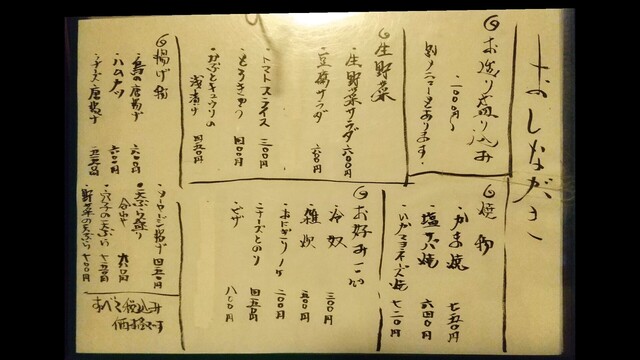 おしながき
お造り盛り込み
一〇〇〇円〜
別メニューもあります。
焼物
かま焼 七五〇円
塩サバ焼 六四〇円
いかマヨネーズ焼 七二〇円
生野菜
生野菜サラダ 六〇〇円
豆腐サラダ 六〇〇円
トマトスライス 三〇〇円
もろきゅう 四〇〇円
かぶとキュウリの
浅漬け 四五〇円
お好み一品
冷奴 三〇〇円
雑炊 五〇〇円
おにぎり一ヶ 二〇〇円
チーズとのり 四五〇円
ピザ 八〇〇円
揚げ物
鳥の唐揚げ 六〇〇円
ハムカツ 六〇〇円
チーズ唐揚げ
ソーセージ揚げ 四五〇円
天ぷら盛り
合わせ
穴子の天ぷら
野菜の天ぷら 七〇〇円
すべて税込み
価格です